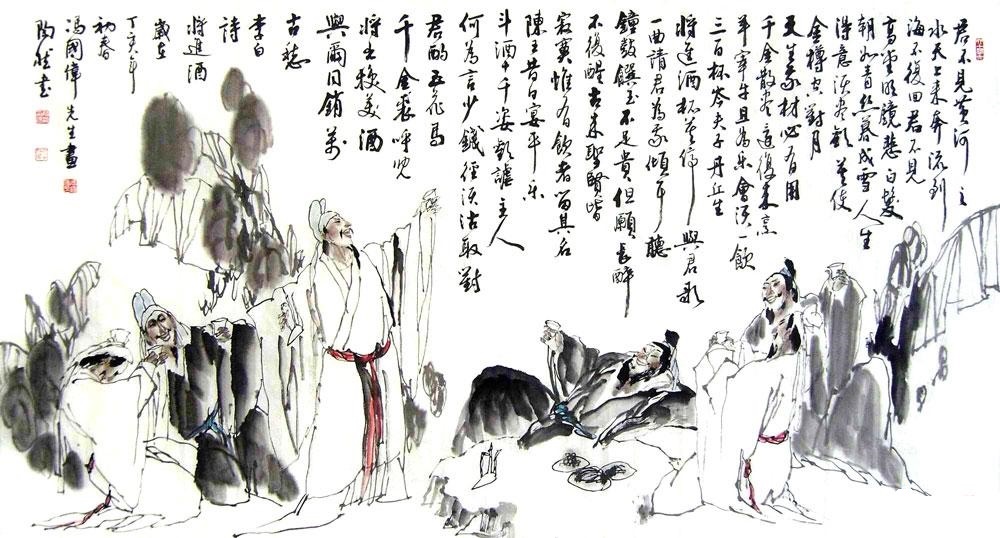 君不見黃河之
水天上来奔流到
海不復回君不見
高堂明鏡悲白髮
朝如青丝暮成雪人生
得意须尽歡莫使
金樽空對月
天生我材必有用
千金散尽還復来烹
羊宰牛且為乐會须一飲
三百杯岑夫子丹丘生
将進酒杯莫停與君歌
一曲請君為我傾耳聽
鐘鼓饌玉不足貴但願長醉
不復醒古来聖賢皆
寂寞惟有飲者留其名
陳王昔日宴平乐
斗酒十千姿歡謔主人
何為言少錢徑须沽取對
君酌五花馬
千金裘呼兒
将出換美酒
與爾同銷萬
古愁
李白
詩
将進酒
歲在
丁亥年
初春
馮國偉先生畫
陶 書